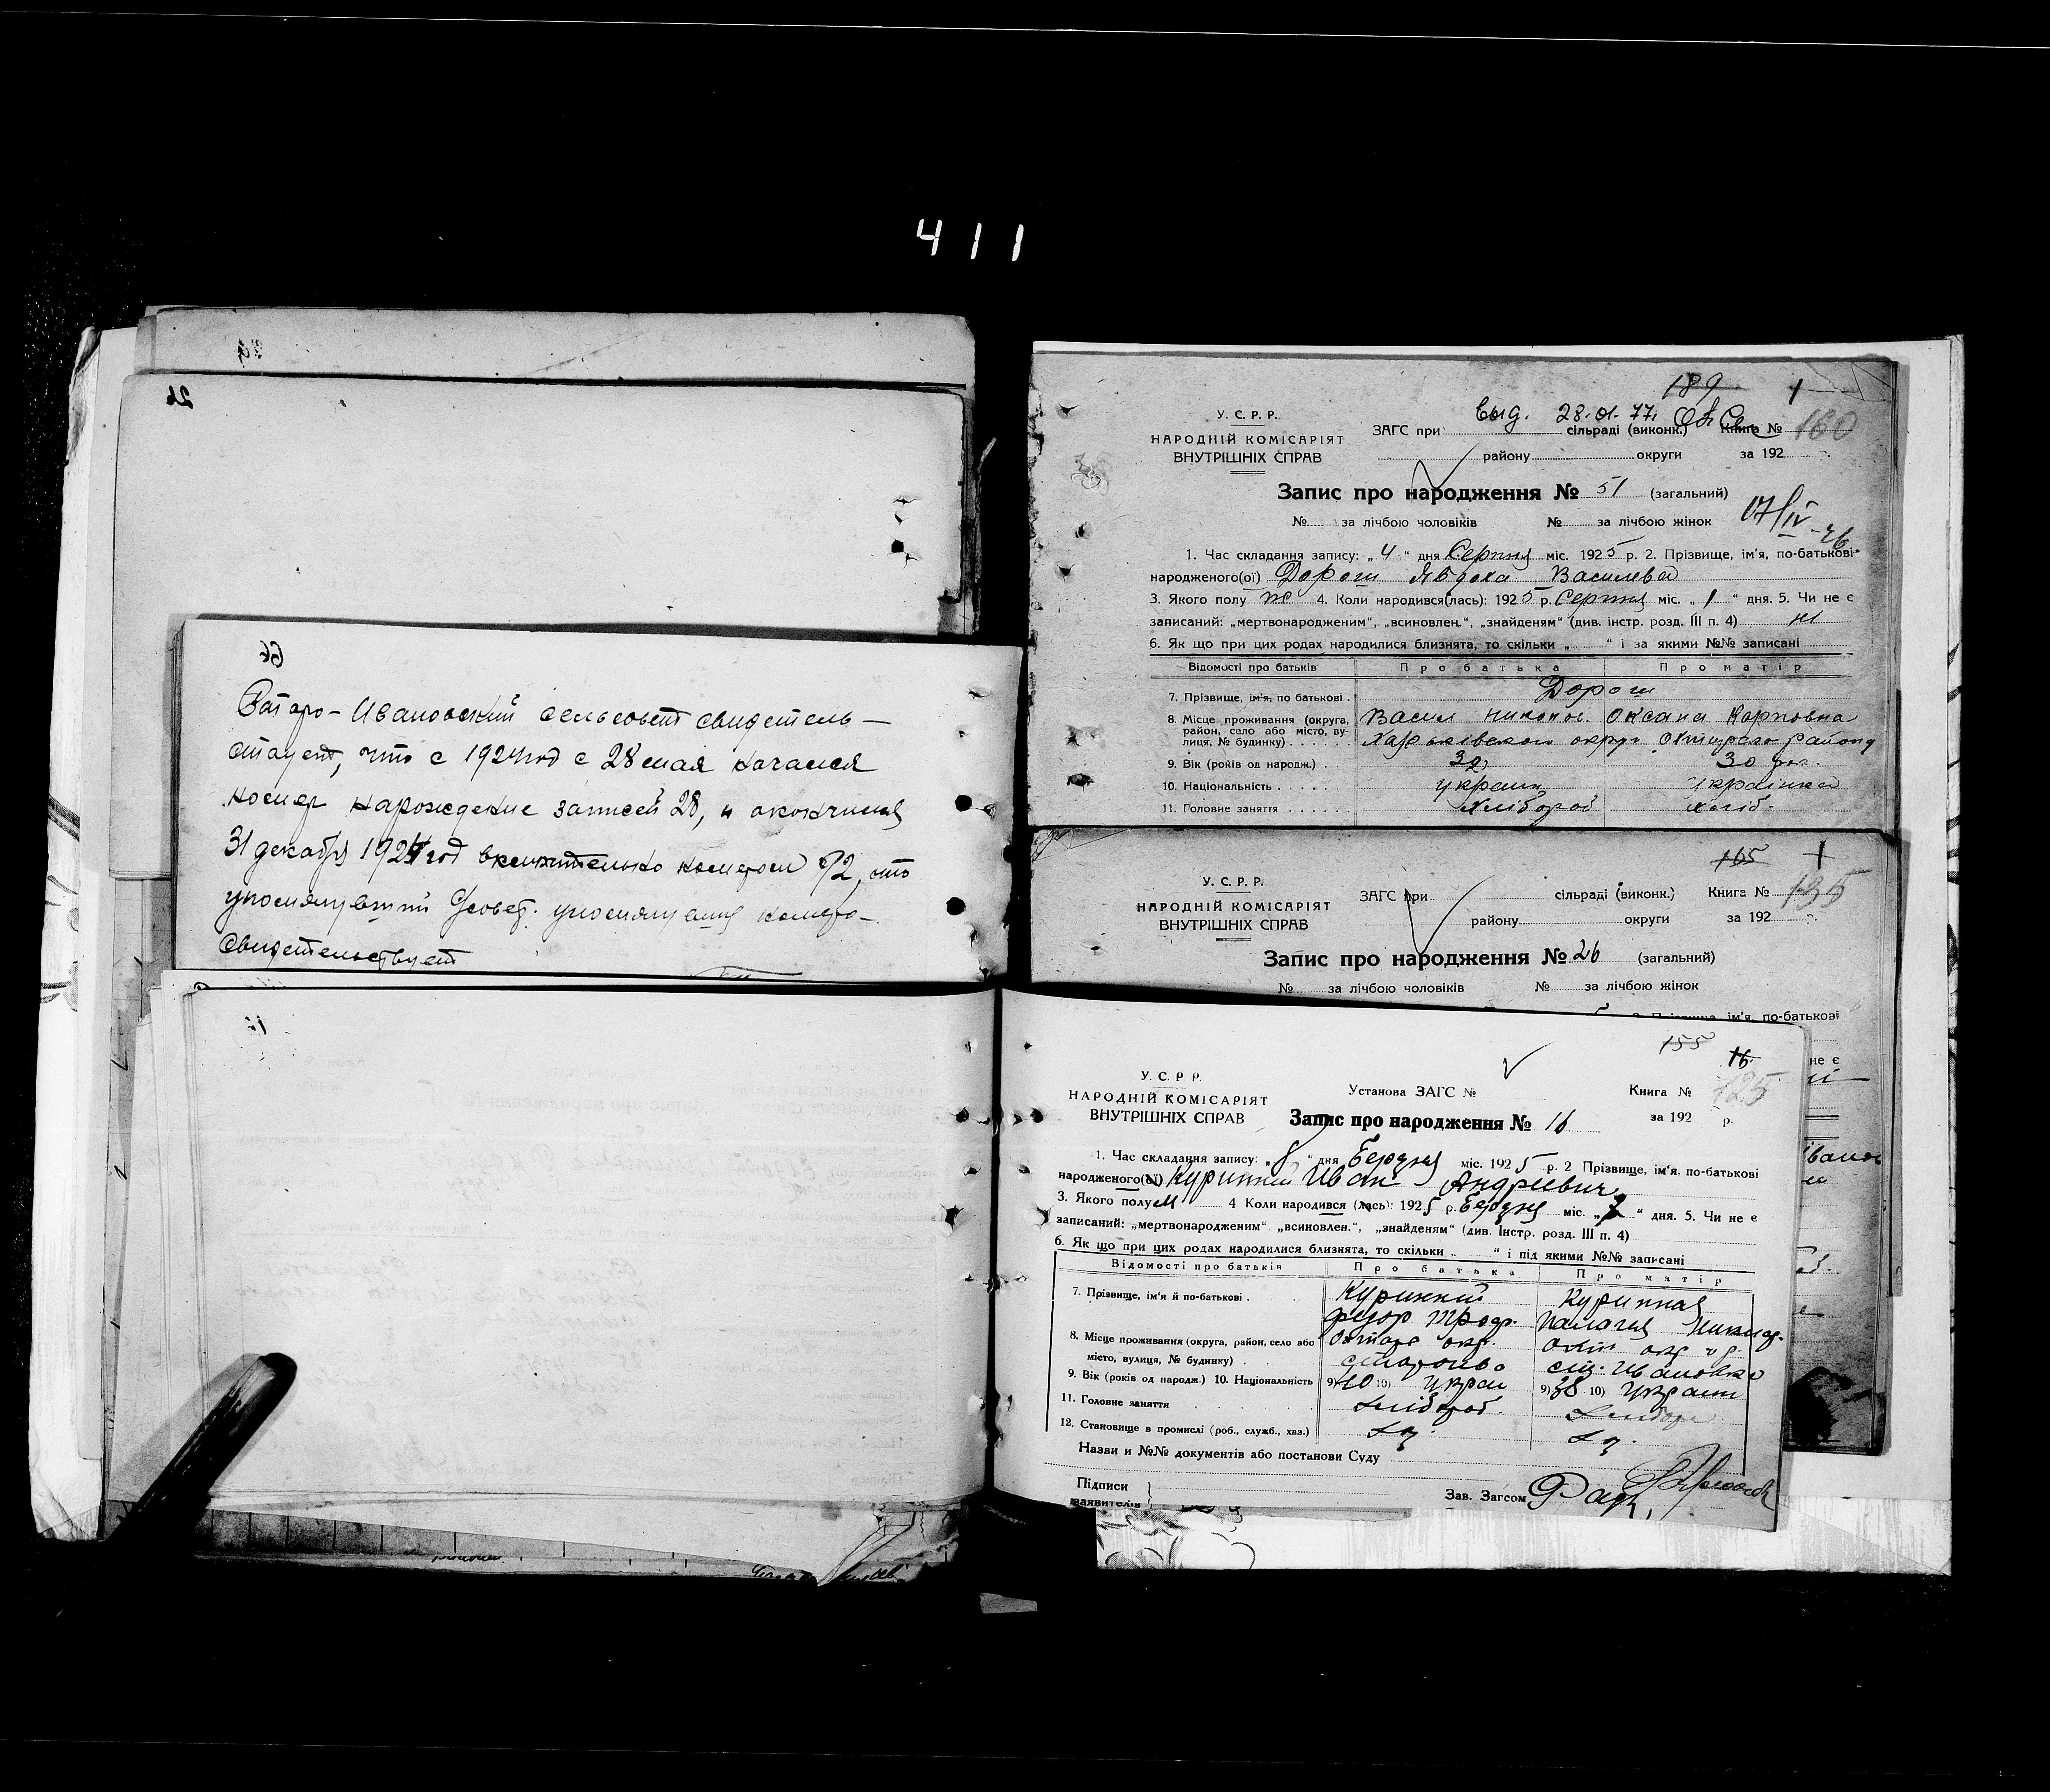 411
26
66
Старо-Ивановский сельсовет свидетель-
ствует, что с 1924 год с 28 мая начался
номер нарождение записей 28, и окончился
31 декабря 1924 год включительно номером 92, что
упомянутый упомянутия номера
свидетельствует
189 1
Выд. 28.01.77.
У. С. Р. Р.
НАРОДНІЙ КОМІСАРІЯТ
ВНУТРІШНІХ СПРАВ
ЗАГС при сільраді (виконк.) Книга № 160
району округи за 192
Запис про народження № 51 (загальний)
№ за лічбою чоловіків № за лічбою жінок 17/IV-26
1. Час складання запису: „4“ дня Серпня міс. 1925 р. 2. Прізвище, ім'я, по-батькові
народженого(ої) Дорош Явдоха Василева
3. Якого полу ж 4. Коли народився(лась): 1925 р. Серпня міс. „1“ дня. 5. Чи не є
записаний: „мертвонародженим“, „всиновлен.“, „знайденям“ (див. інстр. розд. III п. 4) ні
6. Як що при цих родах народилися близнята, то скільки „ “ і за якими №№ записані
Відомості про батьків Про батька Про матір
7. Прізвище, ім'я, по батькові Дорош
8. Місце проживання (округа, район, село або місто, вулиця, № будинку) Васил Никонов. Оксана Карповна
Харьківськои округ. Охтирско района
9. Вік (років од народж.) 32 30
10. Національність україн українка
11. Головне заняття Хлібороб хліб.
165 1
У. С. Р. Р.
НАРОДНІЙ КОМІСАРІЯТ
ВНУТРІШНІХ СПРАВ
ЗАГС при сільраді (виконк.) Книга № 135
району округи за 192
Запис про народження № 26 (загальний)
№ за лічбою чоловіків № за лічбою жінок
ім'я, по-батькові
не є
155 16
У. С. Р. Р.
НАРОДНІЙ КОМІСАРІЯТ
ВНУТРІШНІХ СПРАВ
Установа ЗАГС № Книга № 125
Запис про народження № 16 за 192 р.
1. Час складання запису: „8“ дня Березня міс. 1925 р. 2 Прізвище, ім'я, по-батькові
народженого(ої) Куринний Иван Андриевич
3. Якого полу м 4 Коли народився (лась): 1925 р. Березня міс. „2“ дня. 5. Чи не є
записаний: „мертвонародженим“ „всиновлен.“, „знайденям“ (див. Інстр. розд. III п. 4)
6. Як що при цих родах народилися близнята, то скільки „ “ і під якими №№ записані
Відомості про батьків Про батька Про матір
7. Прізвище, ім'я й по-батькові Куринний Куринная
федор Палагия
8. Місце проживання (округа, район, село або охтирс окр. охт окр
місто, вулиця, № будинку) староива ст. Ивановка
9. Вік (років од народж.) 10. Національність 9) 40 10) украи 9) 38 10) украин
11. Головне заняття хлібороб
12. Становище в промислі (роб., служб., хаз.) хз. хз.
Назви и №№ документів або постанови Суду
Підписи
заявителів
Зав. Загсом